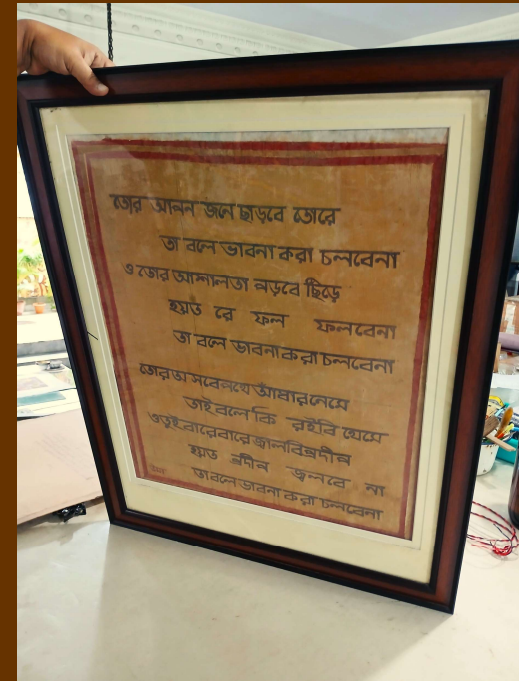 তোর আপন জনে ছাড়বে তোরে
তা বলে ভাবনা করা চলবেনা
ও তোর আশালতা পড়বে ছিঁড়ে
হয়ত রে ফল ফলবেনা
তা বলে ভাবনা করা চলবেনা
আসবে পথে আঁধার নেমে
তাই বলে কি রইবি থেমে
ও তুই বারে বারে জ্বালবি প্রদীপ
হয়ত প্রদীপ জ্বলবে না
তা বলে ভাবনা করা চলবেনা